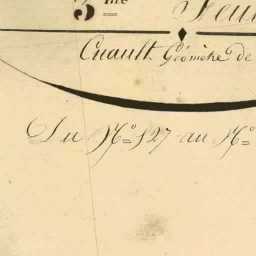 3me Feui
Cuault Géomètre de
Du No 127 au No